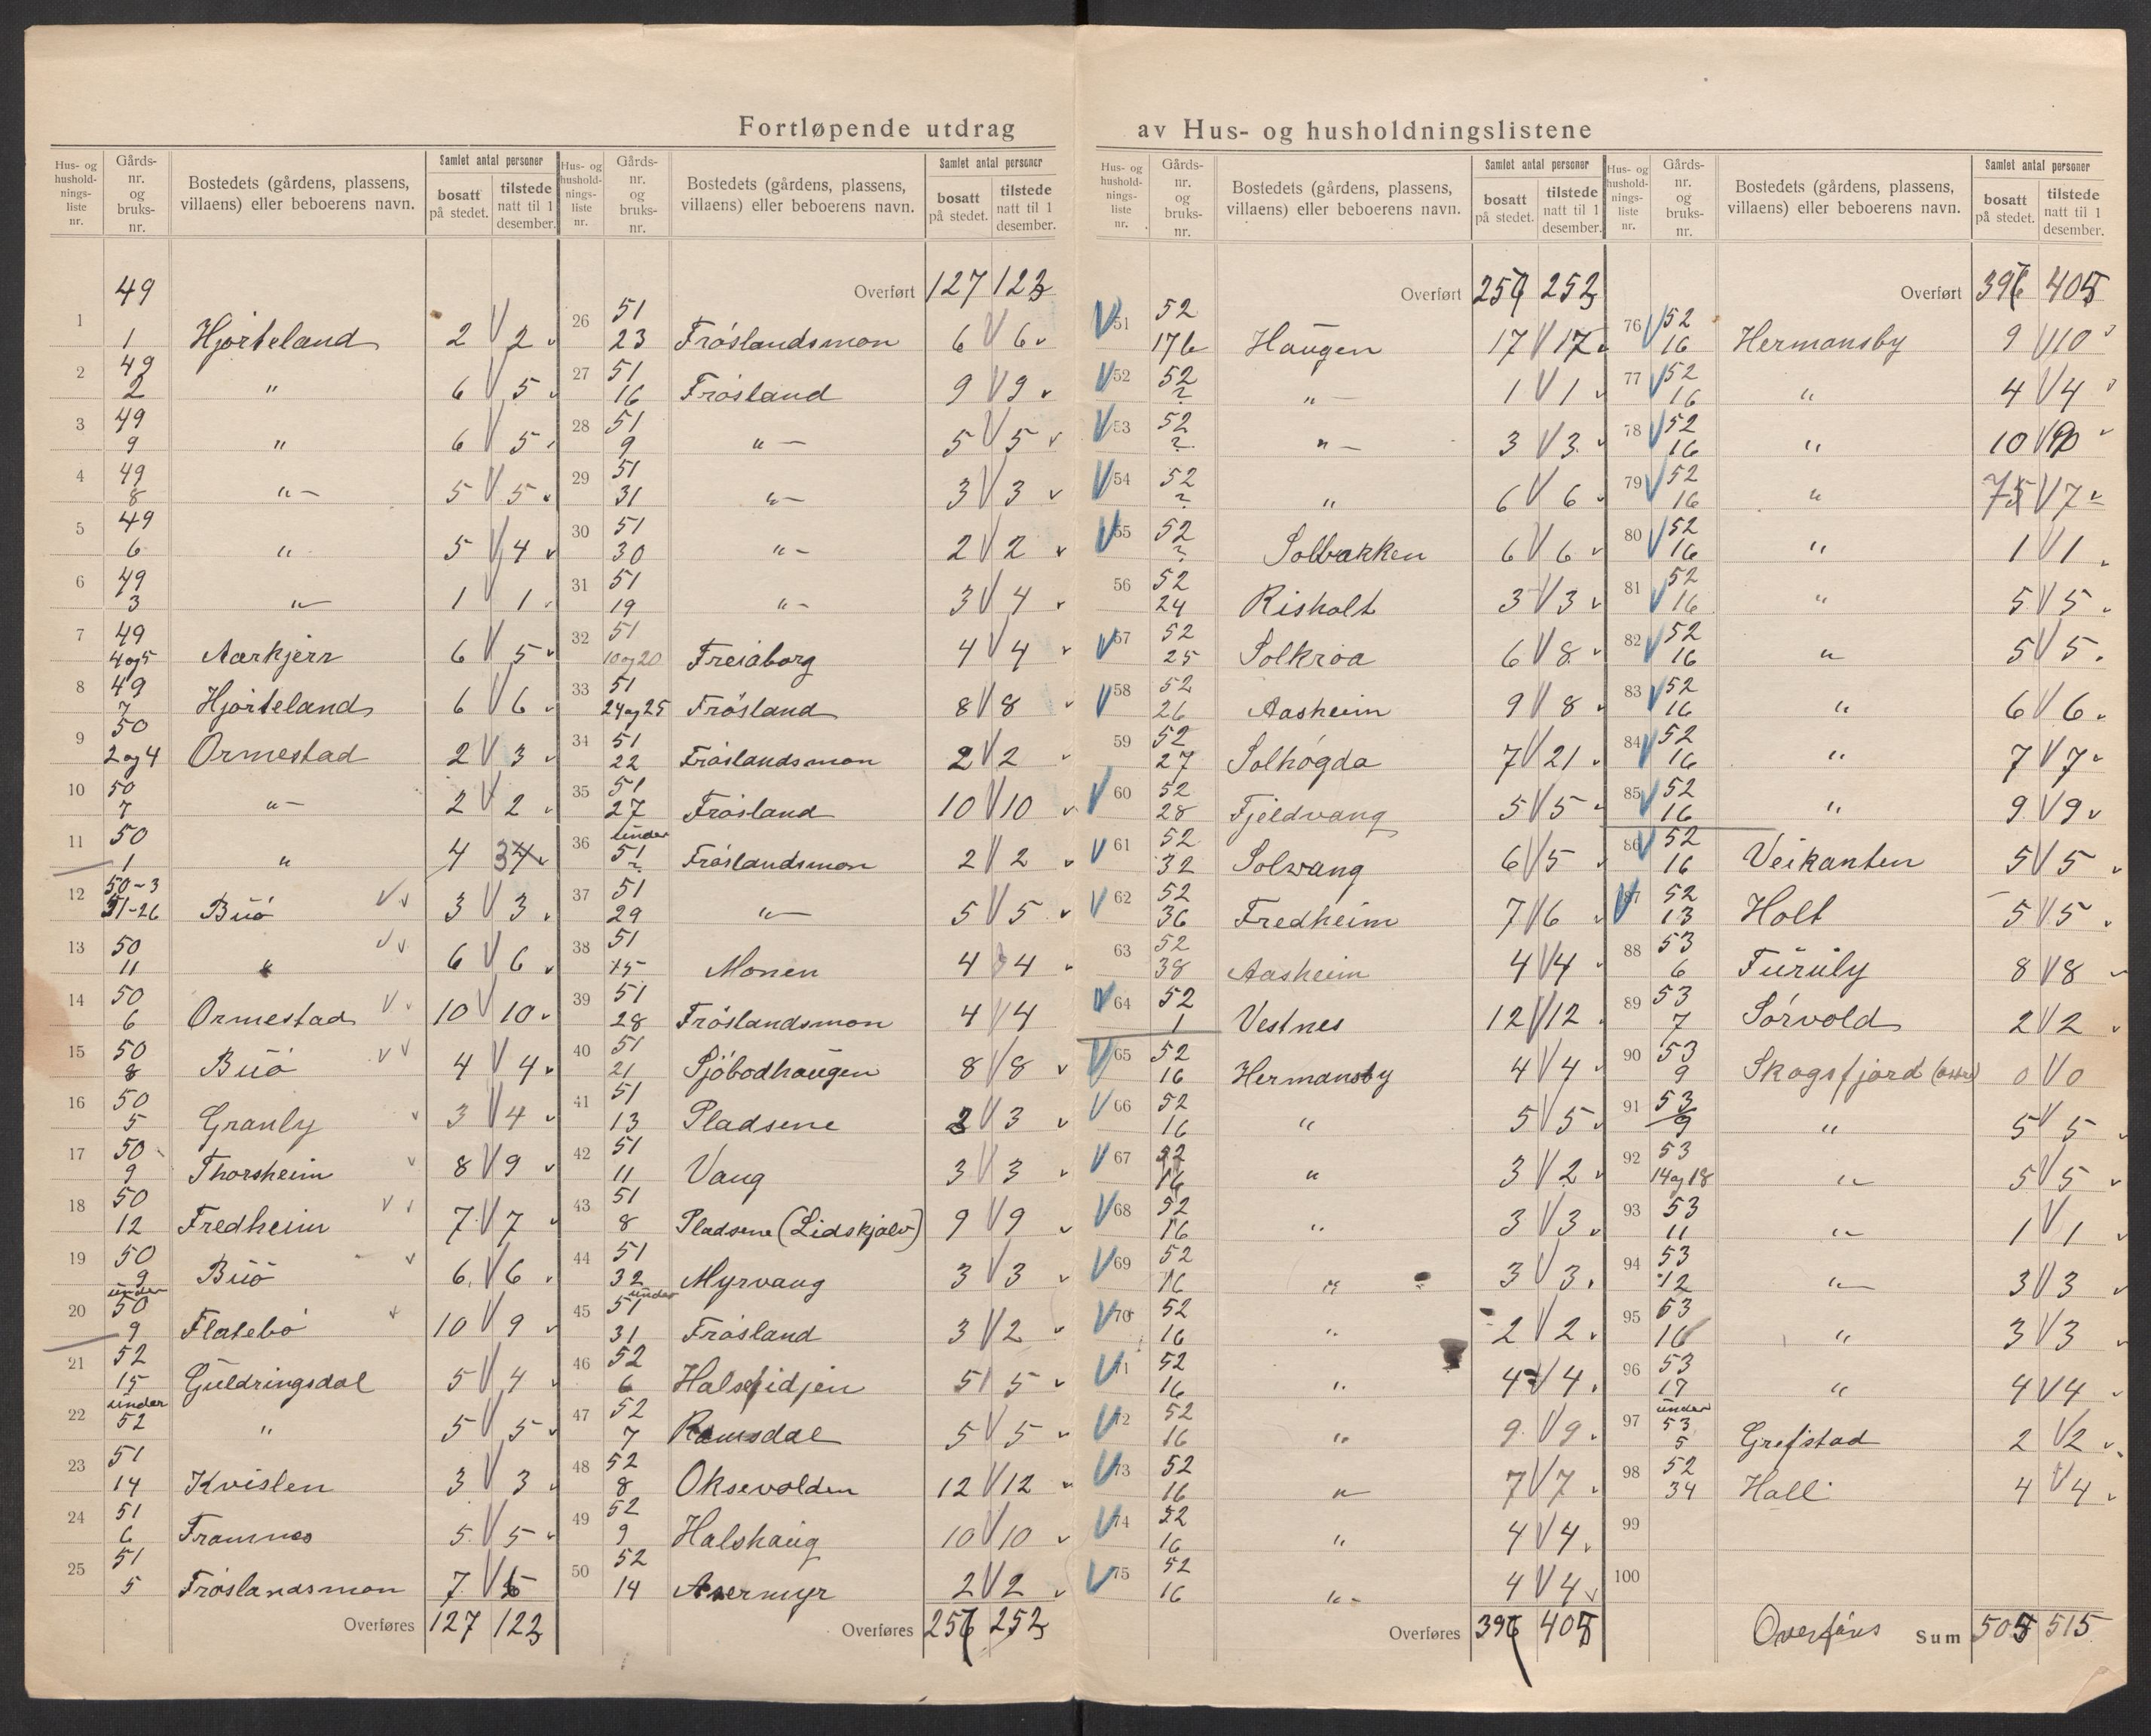 Fortløpende utdrag av Hus- og husholdningslistene
Hus- og husholdnings-liste nr. | Gårds-nr. og bruks-nr. | Bostedets (gårdens, plassens, villaens) eller beboerens navn. | Samlet antal personer | bosatt på stedet. | tilstede natt til 1 desember.
1 | 49 1 | Hjorteland | 2 | 2
2 | 49 2 | " | 6 | 5
3 | 49 9 | " | 6 | 5
4 | 49 8 | " – | 5 | 5
5 | 49 6 | " | 5 | 4
6 | 49 3 | " | 1 | 1
7 | 49 4 og 5 | Aarkjerr | 6 | 5
8 | 49 7 | Hjorteland | 6 | 6
9 | 50 2 og 4 | Ormestad | 2 | 3
10 | 50 7 | " – | 2 | 2
11 | 50 1 | " | 4 | 3
12 | 50-3 51-26 | Buö | 3 | 3
13 | 50 11 | " | 6 | 6
14 | 50 6 | Ormestad | 10 | 10
15 | 50 8 | Buö | 4 | 4
16 | 50 5 | Granly | 3 | 4
17 | 50 9 | Thorsheim | 8 | 9
18 | 50 12 | Fredheim | 7 | 7
19 | 50 9 | Buö | 6 | 6
20 | under 50 9 | Flatebö | 10 | 9
21 | 52 15 | Guldringsdal | 5 | 4
22 | under 52 | " | 5 | 5
23 | 51 14 | Kvislen | 3 | 3
24 | 51 6 | Framnes | 5 | 5
25 | 51 5 | Fröslandsmon | 7 |
Overføres 127 | 123
Hus- og husholdnings-liste nr. | Gårds-nr. og bruks-nr. | Bostedets (gårdens, plassens, villaens) eller beboerens navn. | Samlet antal personer | bosatt på stedet. | tilstede natt til 1 desember.
Overført 127 | 123
26 | 51 23 | Fröslandsmon | 6 | 6
27 | 51 16 | Frösland | 9 | 9
28 | 51 9 | " – | 5 | 5
29 | 51 31 | " – | 3 | 3
30 | 51 30 | " – | 2 | 2
31 | 51 19 | " – | 3 | 4
32 | 51 10 og 20 | Freiaborg | 4 | 4
33 | 51 24 og 25 | Frösland | 8 | 8
34 | 51 22 | Fröslandsmon | 2 | 2
35 | 51 27 | Frösland | 10 | 10
36 | under 51 ? | Fröslandsmon | 2 | 2
37 | 51 29 | " – | 5 | 5
38 | 51 15 | Monen | 4 | 4
39 | 51 28 | Fröslandsmon | 4 | 4
40 | 51 21 | Sjöbodhaugen | 8 | 8
41 | 51 13 | Pladsene | 3 | 3
42 | 51 11 | Vang | 3 | 3
43 | 51 8 | Pladsene (Lidskjalv) | 9 | 9
44 | 51 32 | Myrvang | 3 | 3
45 | under 51 31 | Frösland | 3 | 2
46 | 52 6 | Halsefidjen | 5 | 5
47 | 52 7 | Ramsdal | 5 | 5
48 | 52 8 | Oksevolden | 12 | 12
49 | 52 9 | Halshaug | 10 | 10
50 | 52 14 | Asermyr | 2 | 2
Overføres 256 | 252
Hus- og husholdnings-liste nr. | Gårds-nr. og bruks-nr. | Bostedets (gårdens, plassens, villaens) eller beboerens navn. | Samlet antal personer | bosatt på stedet. | tilstede natt til 1 desember.
Overført 256 | 252
51 | 52 176 | Haugen | 17 | 17
52 | 52 ? | " – | 1 | 1
53 | 52 ? | " – | 3 | 3
54 | 52 ? | " | 6 | 6
55 | 52 ? | Solbakken | 6 | 6
56 | 52 24 | Risholt | 3 | 3
57 | 52 25 | Solkroa | 6 | 8
58 | 52 26 | Aasheim | 9 | 8
59 | 52 27 | Solhögda | 7 | 21
60 | 52 28 | Fjeldvang | 5 | 5
61 | 52 32 | Solvang | 6 | 5
62 | 52 36 | Fredheim | 7 | 6
63 | 52 38 | Aasheim | 4 | 4
64 | 52 1 | Vestnes | 12 | 12
65 | 52 16 | Hermansby | 4 | 4
66 | 52 16 | " | 5 | 5
67 | 52 16 | " | 3 | 2
68 | 52 16 | " | 3 | 3
69 | 52 16 | " | 3 | 3
70 | 52 16 | " | 2 | 2
71 | 52 16 | " | 4 | 4
72 | 52 16 | " | 9 | 9
73 | 52 16 | " | 7 | 7
74 | 52 16 | " | 4 | 4
75 | 52 16 | " – | 4 | 4
Overføres 396 | 405
Hus- og husholdnings-liste nr. | Gårds-nr. og bruks-nr. | Bostedets (gårdens, plassens, villaens) eller beboerens navn. | Samlet antal personer | bosatt på stedet. | tilstede natt til 1 desember.
Overført 396 | 405
76 | 52 16 | Hermansby | 9 | 10
77 | 52 16 | " | 4 | 4
78 | 52 16 | " | 10 |
79 | 52 16 | " | 7 | 7
80 | 52 16 | " | 1 | 1
81 | 52 16 | " | 5 | 5
82 | 52 16 | " | 5 | 5
83 | 52 16 | " | 6 | 6
84 | 52 16 | " | 7 | 7
85 | 52 16 | " | 9 | 9
86 | 52 16 | Veikanten | 5 | 5
87 | 52 13 | Holt | 5 | 5
88 | 53 6 | Furuly | 8 | 8
89 | 53 7 | Sörvold | 2 | 2
90 | 53 9 | Skogsfjord (østre) | 0 | 0
91 | 53 9 | " | 5 | 5
92 | 53 14 og 18 | " | 5 | 5
93 | 53 11 | " | 1 | 1
94 | 53 12 | " | 3 | 3
95 | 53 16 | " | 3 | 3
96 | 53 17 | " | 4 | 4
97 | under 53 5 | Grefstad | 2 | 2
98 | 52 34 | Hall | 4 | 4
99
100
Overføres Sum 505 | 515